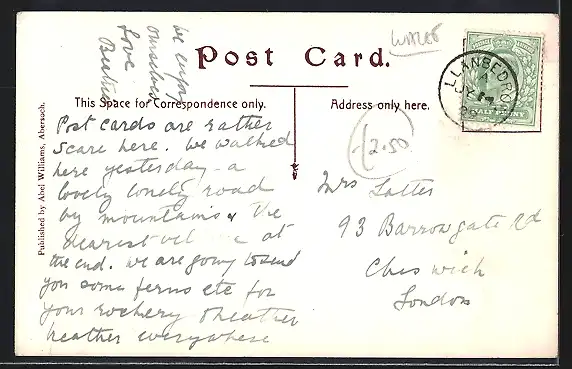 we enjoy
ourselves
Love
Beatie
WALES
Post Card.
This Space for Correspondence only.
Address only here.
Published by Abel Williams, Abersoch.
LLANBEDROG
A
JY 17
HALFPENNY
12.50
Post cards are rather
scarce here. We walked
here yesterday - a
lovely lonely road
by mountains & the
dearest at
the end. We are going to send
you some ferns etc for
your rockery & heather
heather everywhere
Mrs Latter
93 Barrowgate Rd
Chiswick
London